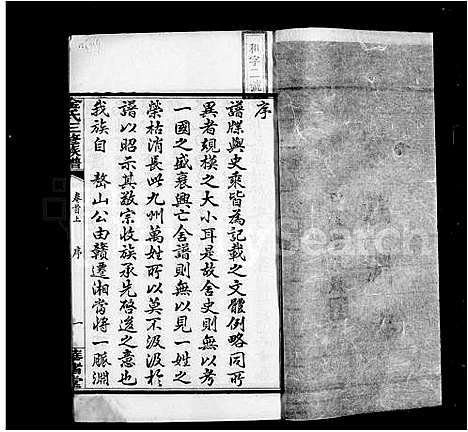 和字二號
序
譜牒與史乘皆為記載之文體例略同所
異者規模之大小耳是故舍史則無以考
一國之盛衰興亡舍譜則無以見一姓之
榮枯消長此九州萬姓所以莫不汲汲於
譜以昭示其敦宗收族承先啓後之意也
我族自 嶅山公由贛遷湘當將一脈淵
氏三修族譜
卷首上 序 一
堂